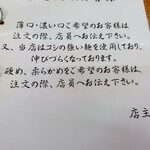 薄口・濃い口ご希望のお客様は
注文の際、店員へお伝え下さい。
又、当店はコシの強い麺を使用しており、
伸びづらくなっております。
硬め、柔らかめをご希望のお客様は
注文の際、店員へお伝え下さい。
店主